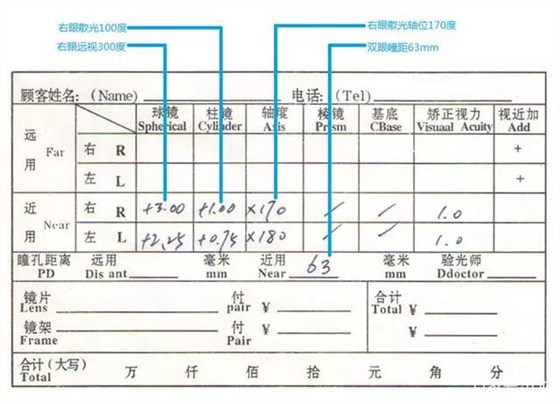 右眼散光100度
右眼散光轴位170度
右眼远视300度
双眼瞳距63mm
顾客姓名:(Name) 电话:(Tel)
球镜 柱镜 轴度 棱镜 基底 矫正视力 视近加
Spherical Cylinder Axis Prism CBase Visuaal Acuity Add
远用 Far 右 R +
左 L +
近用 Near 右 R +3.00 +1.00 ×170 / / 1.0
左 L +2.25 +0.75 ×180 / / 1.0
瞳孔距离 远用 毫米 近用 63 毫米 验光师
PD Dis ant mm Near mm Ddoctor
镜片 付 合计
Lens pair ¥ Total ¥
镜架 付 ¥
Frame Pair ¥
合计(大写) 万 仟 佰 拾 元 角 分
Total